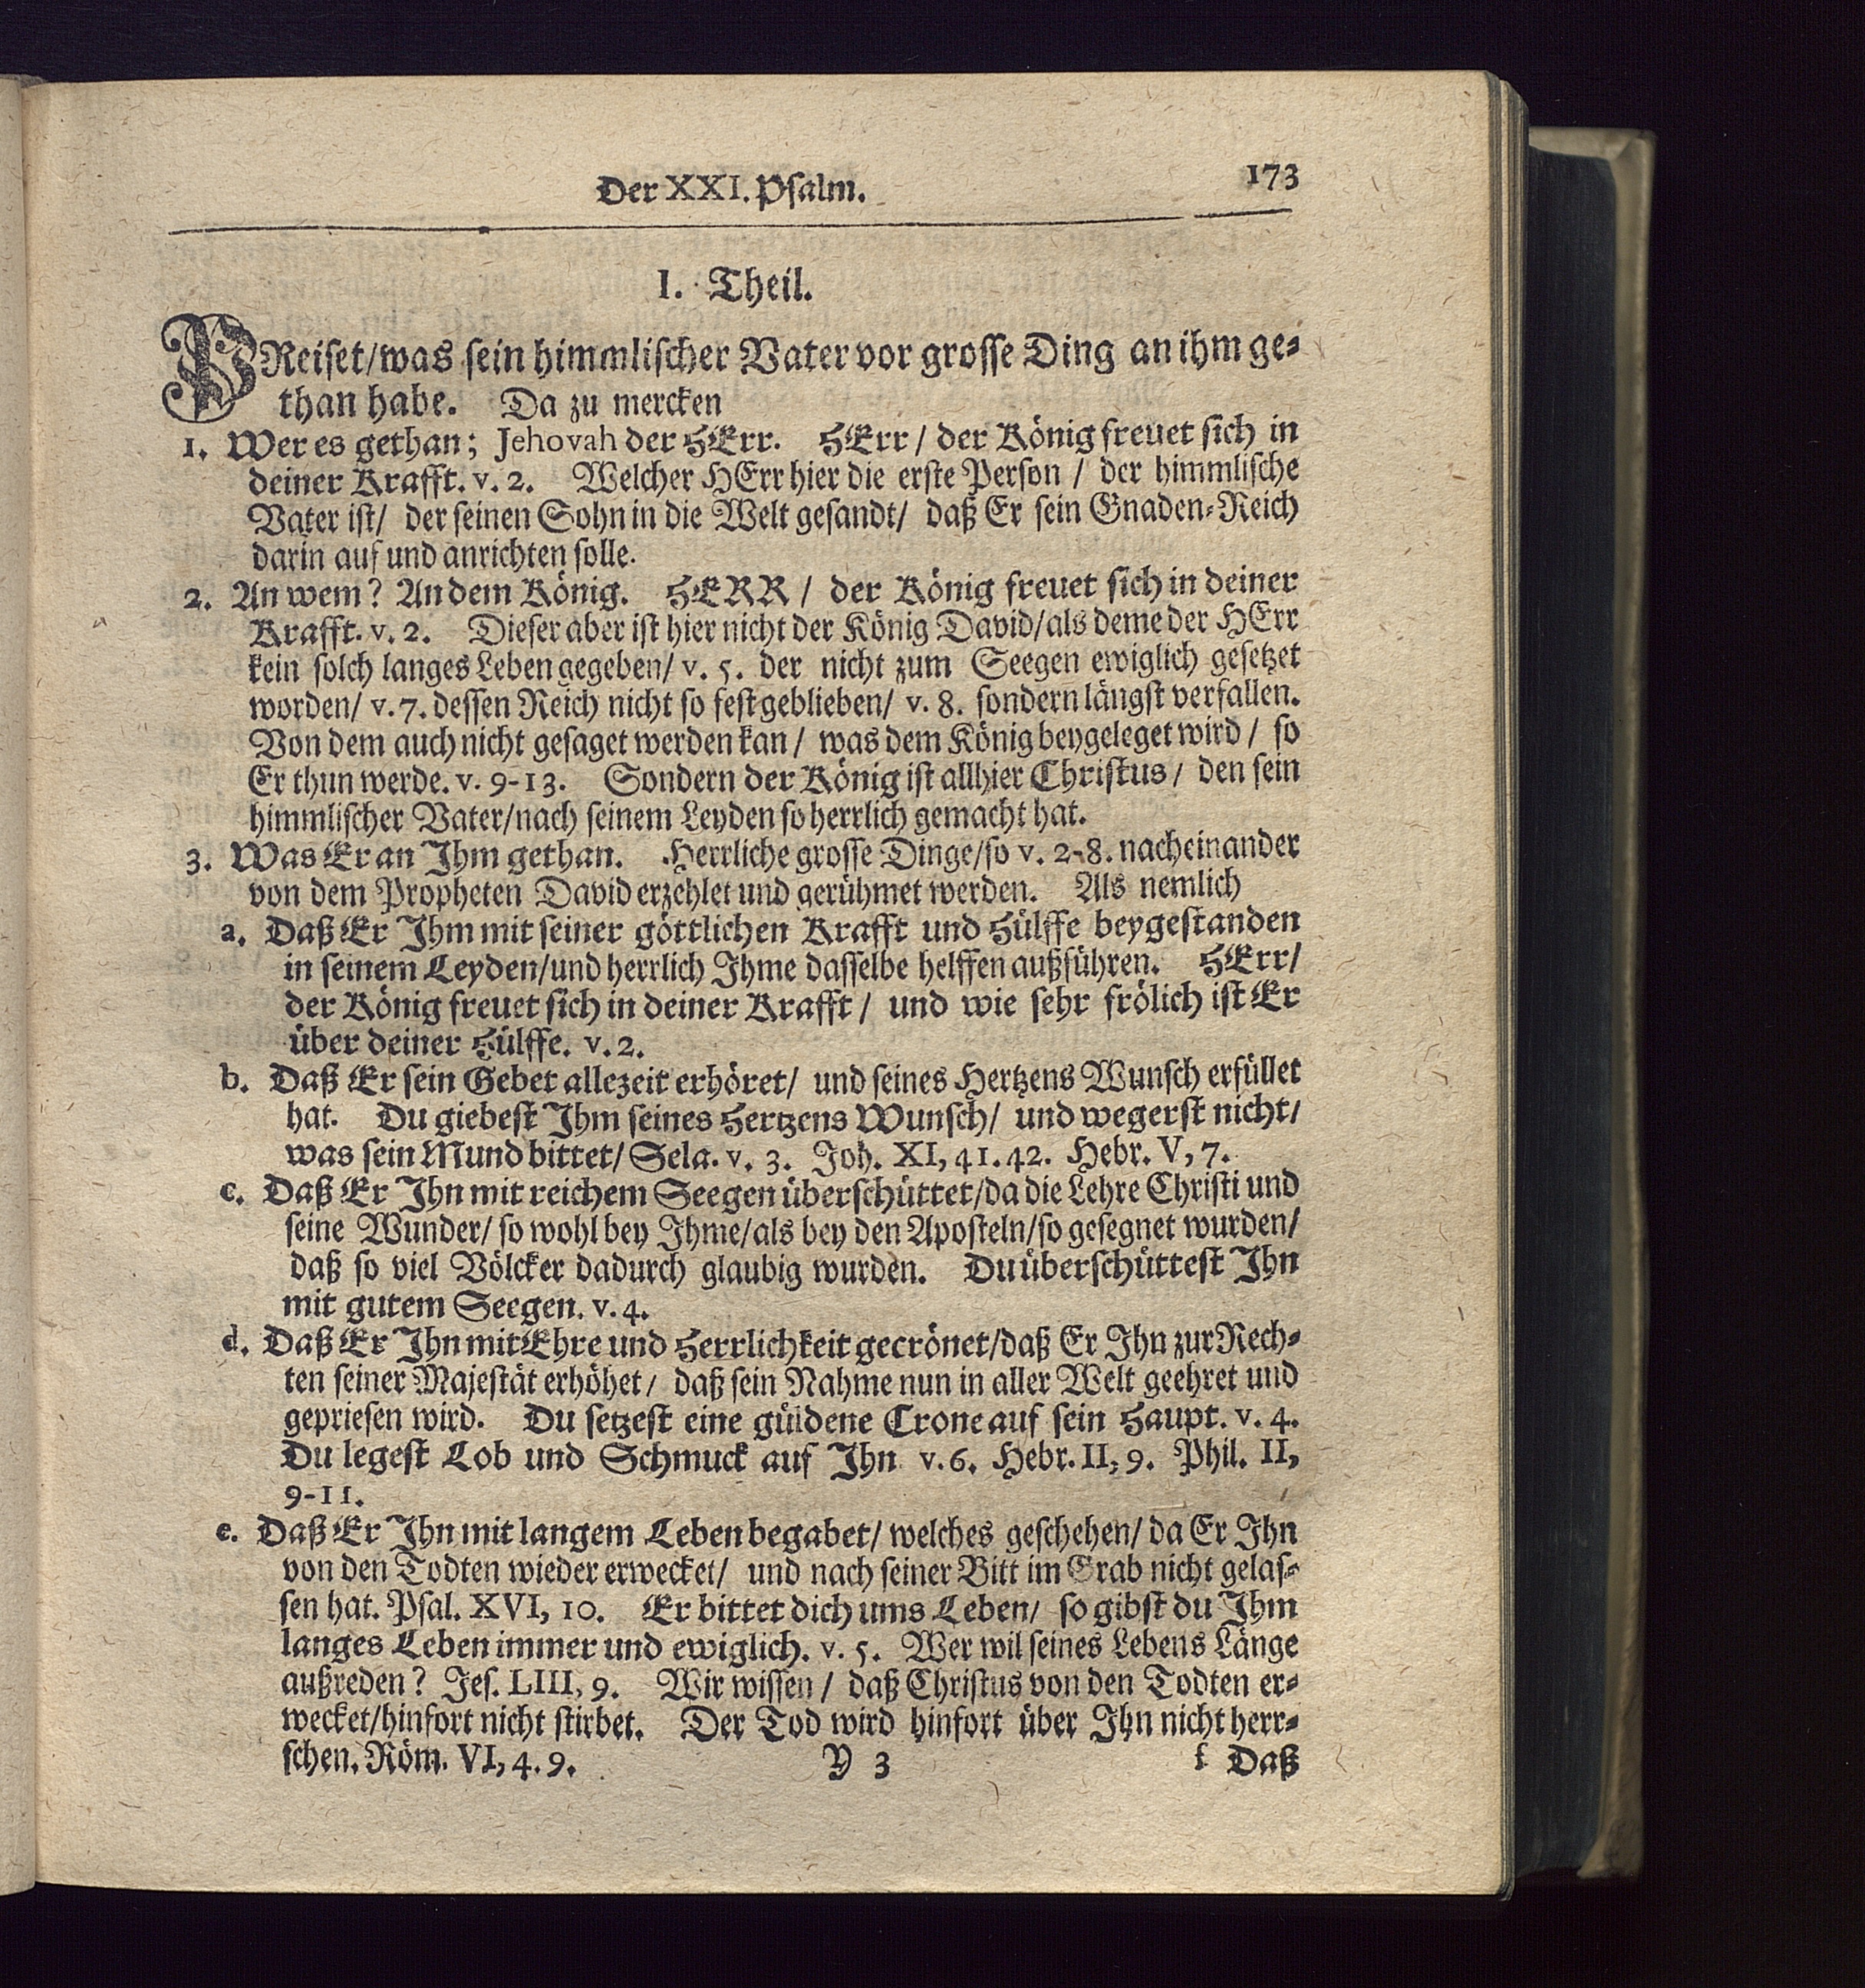 Der XXI. Psalm.
173
I. Theil.
PReiset/was sein himmlischer Vater vor grosse Ding an ihm ge-
than habe. Da zu mercken
1. Wer es gethan; Jehovah der HErr. HErr / der König freuet sich in
deiner Krafft. v. 2. Welcher HErr hier die erste Person / der himmlische
Vater ist/ der seinen Sohn in die Welt gesandt/ daß Er sein Gnaden-Reich
darin auf und anrichten solle.
2. An wem? An dem König. HERR / der König freuet sich in deiner
Krafft. v. 2. Dieser aber ist hier nicht der König David/als deme der HErr
kein solch langes Leben gegeben/ v. 5. der nicht zum Seegen ewiglich gesetzet
worden/ v. 7. dessen Reich nicht so fest geblieben/ v. 8. sondern längst verfallen.
Von dem auch nicht gesaget werden kan / was dem König beygeleget wird / so
Er thun werde. v. 9-13. Sondern der König ist allhier Christus / den sein
himmlischer Vater/nach seinem Leyden so herrlich gemacht hat.
3. Was Er an Ihm gethan. Herrliche grosse Dinge/so v. 2-8. nacheinander
von dem Propheten David erzehlet und gerühmet werden. Als nemlich
a. Daß Er Ihm mit seiner göttlichen Krafft und Hülffe beygestanden
in seinem Leyden/und herrlich Ihme dasselbe helffen außführen. HErr/
der König freuet sich in deiner Krafft / und wie sehr frölich ist Er
über deiner Hülffe. v. 2.
b. Daß Er sein Gebet allezeit erhöret/ und seines Hertzens Wunsch erfüllet
hat. Du giebest Ihm seines Hertzens Wunsch/ und wegerst nicht/
was sein Mund bittet/ Sela. v. 3. Joh. XI, 41. 42. Hebr. V, 7.
c. Daß Er Ihn mit reichem Seegen überschüttet/da die Lehre Christi und
seine Wunder/ so wohl bey Ihme/als bey den Aposteln/so gesegnet wurden/
daß so viel Völcker dadurch glaubig wurden. Du überschüttest Ihn
mit gutem Seegen. v. 4.
d. Daß Er Ihn mit Ehre und Herrlichkeit gecrönet/daß Er Ihn zur Rech-
ten seiner Majestät erhöhet / daß sein Nahme nun in aller Welt geehret und
gepriesen wird. Du setzest eine güldene Crone auf sein Haupt. v. 4.
Du legest Lob und Schmuck auf Ihn v. 6. Hebr. II, 9. Phil. II,
9-11.
e. Daß Er Ihn mit langem Leben begabet/ welches geschehen/ da Er Ihn
von den Todten wieder erwecket/ und nach seiner Bitt im Grab nicht gelas-
sen hat. Psal. XVI, 10. Er bittet dich ums Leben/ so gibst du Ihm
langes Leben immer und ewiglich. v. 5. Wer wil seines Lebens Länge
außreden? Jes. LIII, 9. Wir wissen / daß Christus von den Todten er-
wecket/hinfort nicht stirbet. Der Tod wird hinfort über Ihn nicht herr-
schen. Röm. VI, 4. 9.
Y 3
f Daß